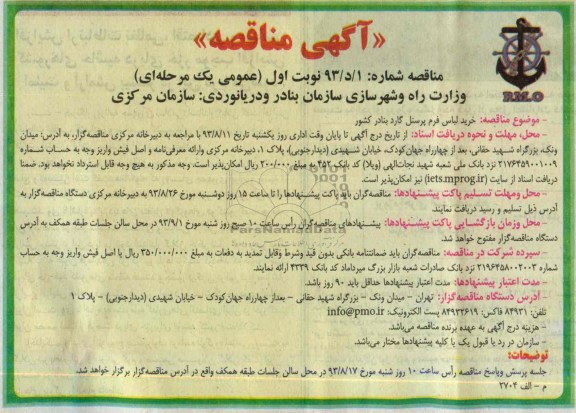 «آگهی مناقصه»
P.M.O
مناقصه شماره: ۹۳/د/۱ نوبت اول (عمومی یک مرحله‌ای)
وزارت راه وشهرسازی سازمان بنادر ودریانوردی: سازمان مرکزی
- موضوع مناقصه: خرید لباس فرم پرسنل گارد بنادر کشور
- محل، مهلت و نحوه دریافت اسناد: از تاریخ درج آگهی تا پایان وقت اداری روز یکشنبه تاریخ ۹۳/۸/۱۱ با مراجعه به دبیرخانه مرکزی مناقصه‌گزار، به آدرس: میدان
ونک، بزرگراه شهید حقانی، بعد از چهارراه جهان‌کودک، خیابان شهیدی (دیدارجنوبی)، پلاک ۱، دبیرخانه مرکزی وارائه معرفی‌نامه و اصل فیش واریز وجه به حساب شماره
۲۱۷۶۴۵۹۰۰۱۰۰۹ نزد بانک ملی شعبه شهید نجات‌الهی (ویلا) کد بانکی ۴۵۲ به مبلغ ۲۰۰/۰۰۰ ریال امکان‌پذیر است. وجه مذکور به هیچ وجه قابل استرداد نخواهد بود. ضمنا
دریافت اسناد از سایت (iets.mporg.ir) نیز امکان‌پذیر است.
- محل ومهلت تسلیم پاکت پیشنهادها: مناقصه‌گران باید پاکت پیشنهادها را تا ساعت ۱۵ روز دوشنبه مورخ ۹۳/۸/۲۶ به دبیرخانه مرکزی دستگاه مناقصه‌گزار به
آدرس ذیل تسلیم و رسید دریافت نمایند.
- محل وزمان بازگشایی پاکت پیشنهادها: پیشنهادهای مناقصه‌گران رأس ساعت ۱۰ صبح روز شنبه مورخ ۹۳/۹/۱ در محل سالن جلسات طبقه همکف به آدرس
دستگاه مناقصه‌گزار مفتوح خواهد شد.
- سپرده شرکت در مناقصه: مناقصه‌گران باید ضمانتنامه بانکی بدون قید وشرط وقابل تمدید به دفعات به مبلغ ۳۵۰/۰۰۰/۰۰۰ ریال یا اصل فیش واریز وجه به حساب
شماره ۲۱۹۶۴۵۸۰۰۲۰۰۳ نزد بانک صادرات شعبه بازار بزرگ میرداماد کد بانک ۳۳۳۹ ارائه نمایند.
- مدت اعتبار پیشنهادها: مدت اعتبار پیشنهادها حداقل باید ۹۰ روز باشد.
- آدرس دستگاه مناقصه‌گزار: تهران - میدان ونک - بزرگراه شهید حقانی - بعداز چهارراه جهان‌کودک - خیابان شهیدی (دیدارجنوبی) - پلاک ۱
تلفن: ۸۴۹۳۱ فاکس: ۸۴۹۳۲۶۱۹ پست الکترونیک: info@pmo.ir
- هزینه درج آگهی به عهده برنده مناقصه می‌باشد.
- سازمان در رد یا قبول یک یا کلیه پیشنهادها مختار می‌باشد.
توضیحات:
جلسه پرسش وپاسخ مناقصه رأس ساعت ۱۰ روز شنبه مورخ ۹۳/۸/۱۷ در محل سالن جلسات طبقه همکف واقع در آدرس مناقصه‌گزار برگزار خواهد شد.
م - الف ۲۷۰۴
ParsNamadData